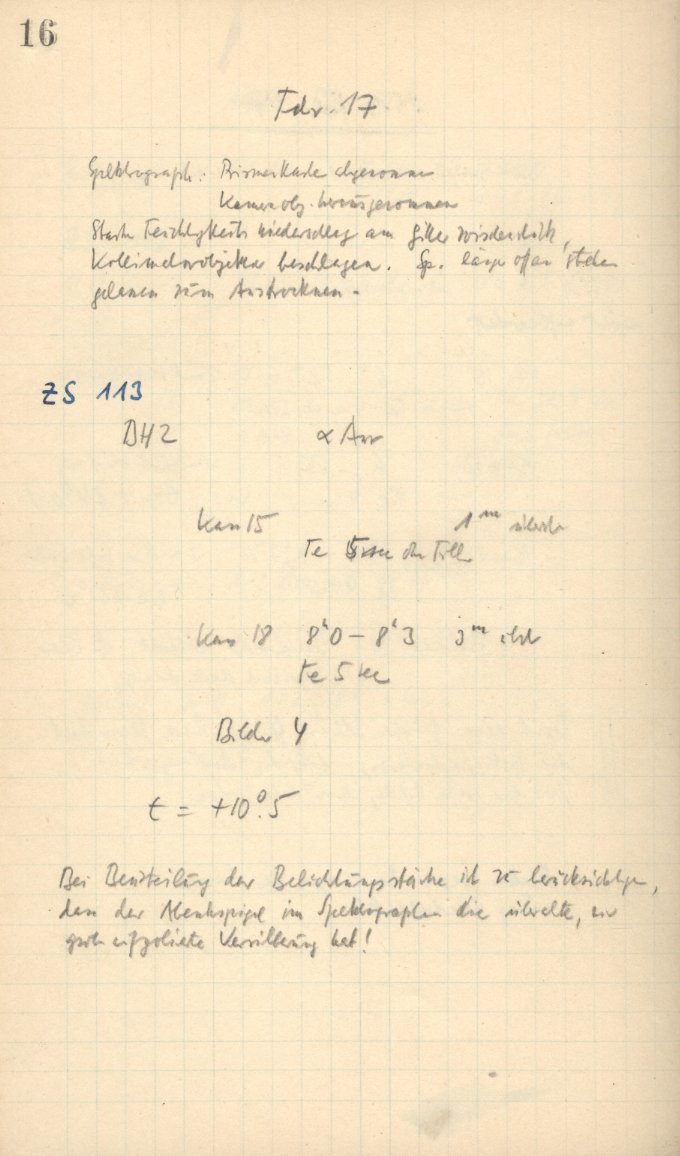 16
Febr. 17
Spektrograph: Prismenkasten abgenommen
Kameraobj. herausgenommen
Starke Feuchtigkeitsniederschlag am
Kollimatorobjektiv beschlagen. Sp. lange offen stehen
gelassen zum Austrocknen.
ZS 113
BH2 α Aur
Kam 15 1ᵐ überb
Te 5 sec ohne Filt
Kam 18 8ʰ0 – 8ʰ3 3ᵐ übb
te 5 sec
Bilder 4
t = +10°.5
Bei Beurteilung der Belichtungsstärke ist zu berücksichtigen,
dass der im Spektrographen die uralte, nur
grob aufpolierte Versilberung hat!